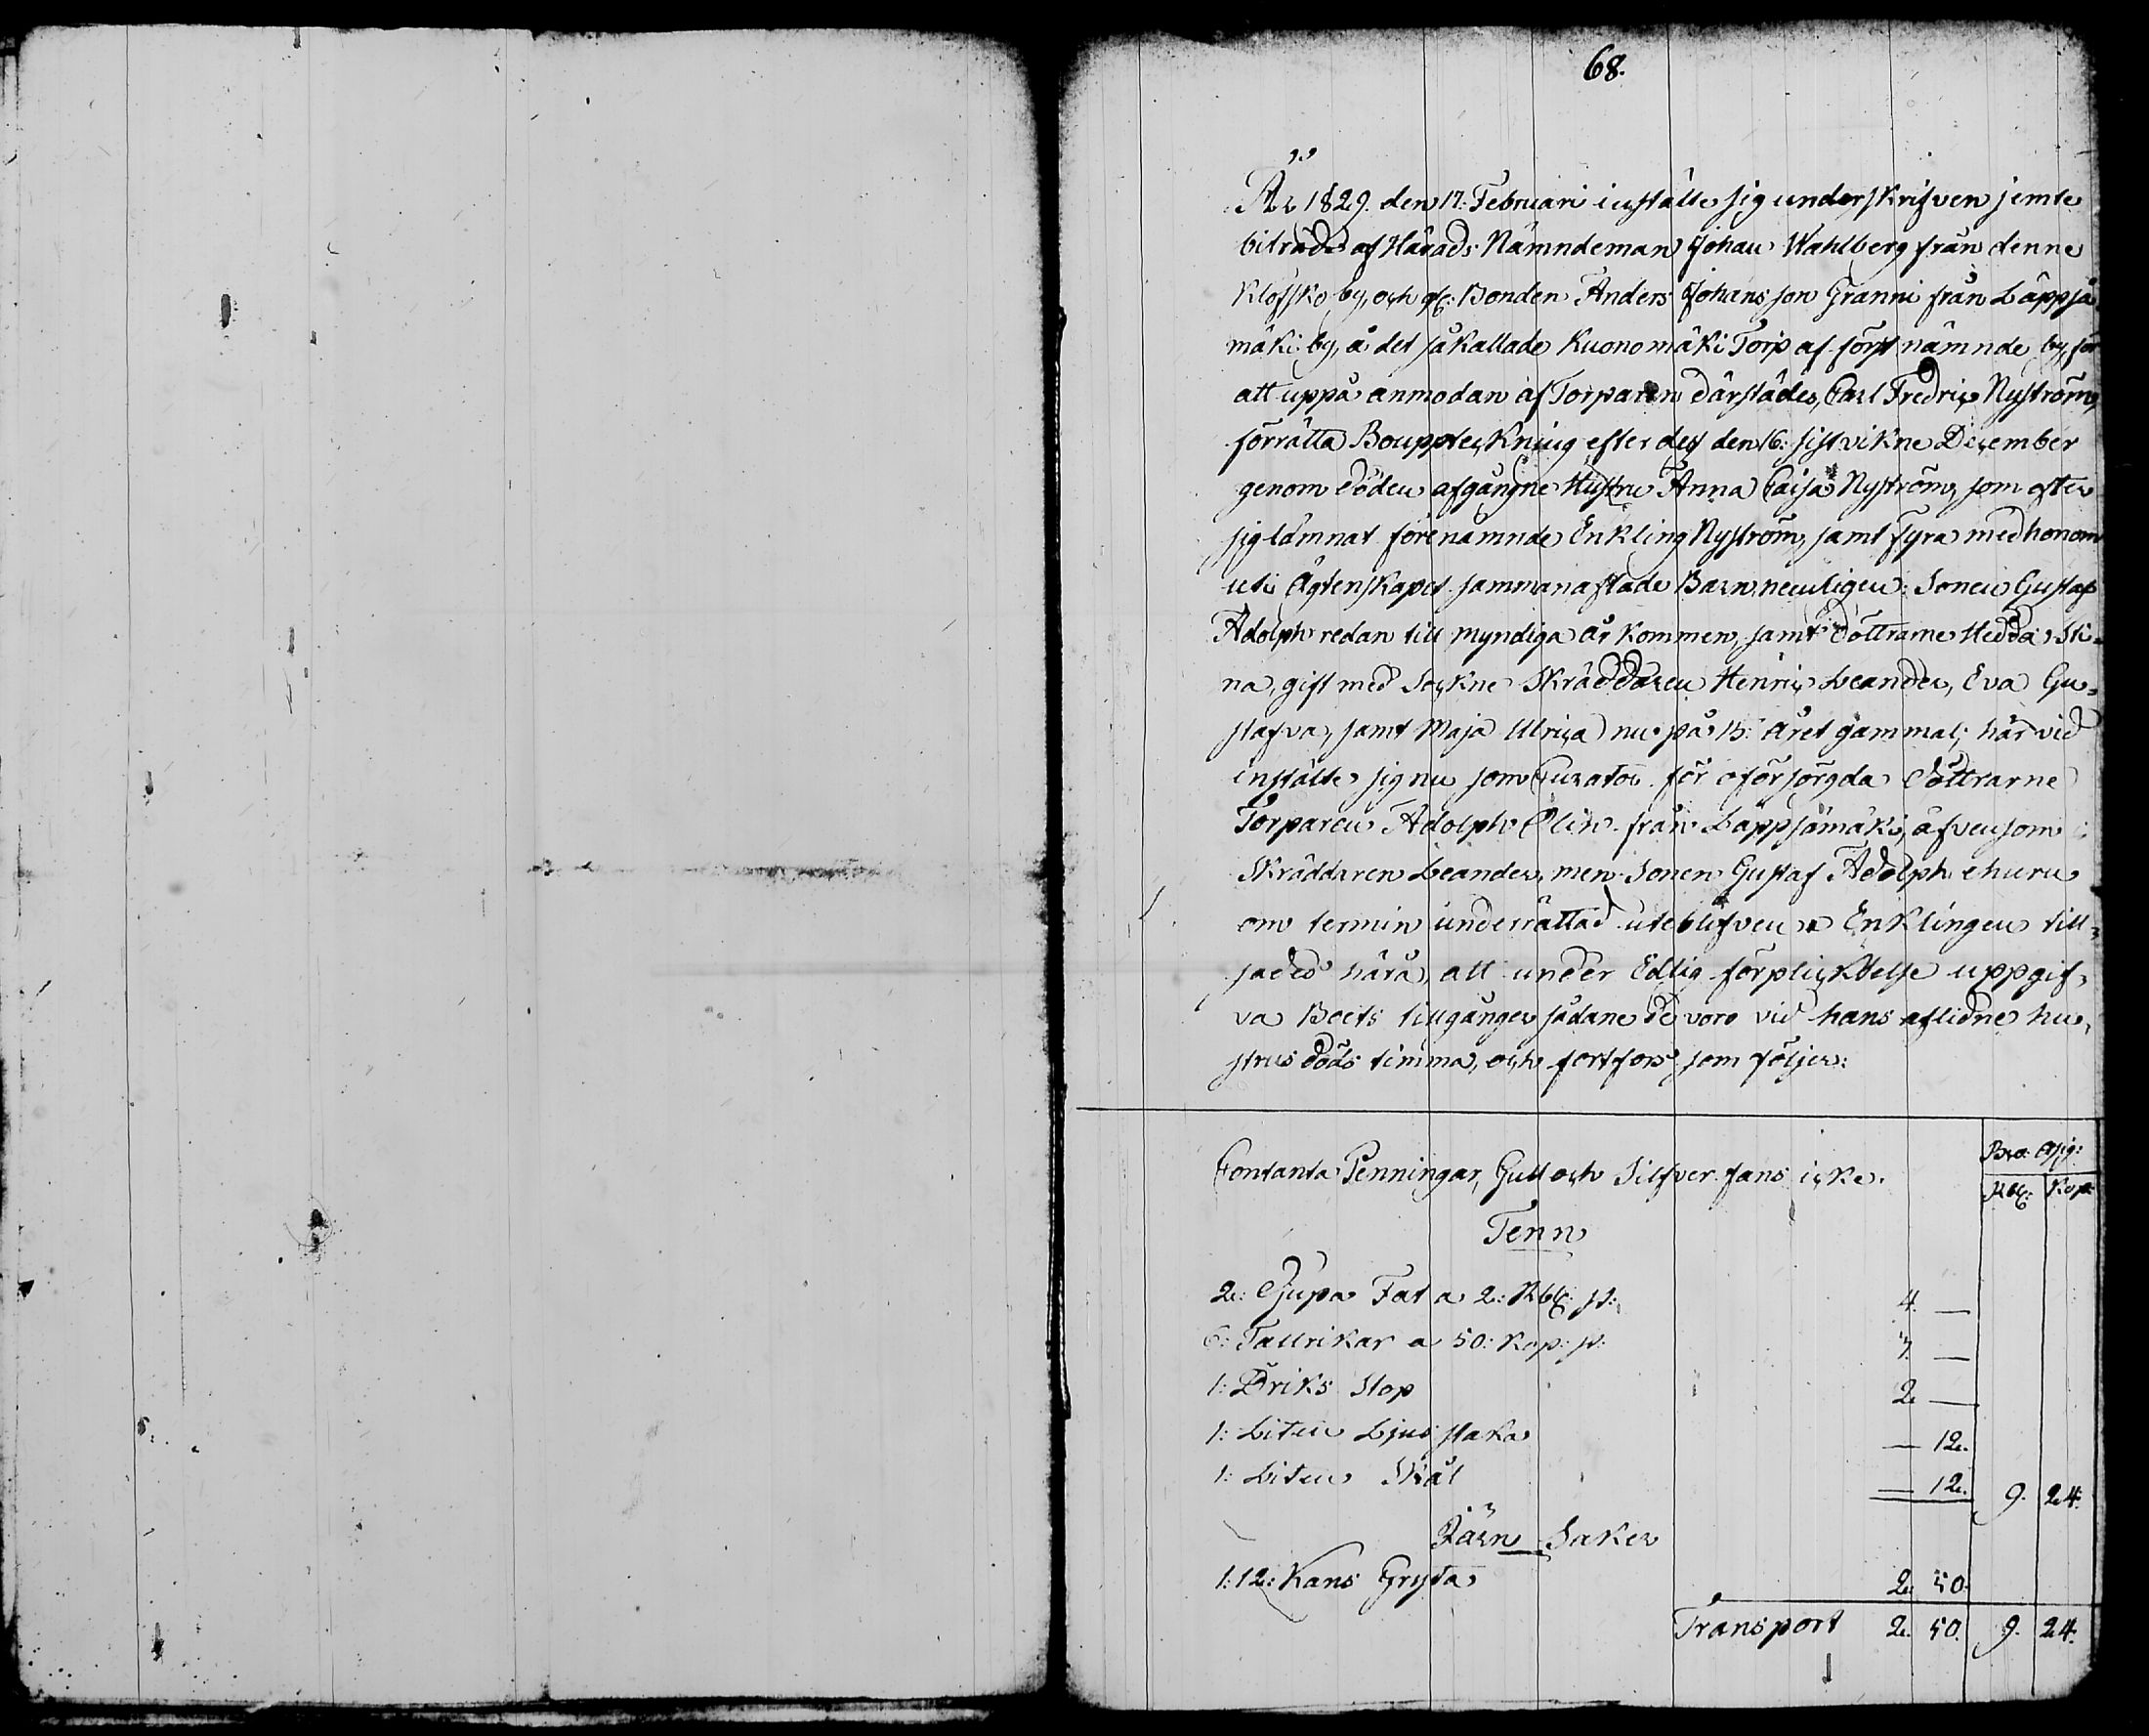 68.
År 1829. den 17. Februari instälte sig underskrifven jemte
biträde af Härads Nämndeman Johan Wahlberg från denne
Klofsko by, och Bonden Anders Johansson Granni från Läppjä
mäki by, å det såkallade Kuonomäki Torp af först nämnde by, för
att uppå anmodan af Torparen därstädes, Carl Fredric Nyström,
förrätta Bouppteckning efter dess den 16. sistvikne December
genom döden afgångne Hustru Anna Caisa Nyström, som efter
sig lämnat förenämnde Enkling Nyström, samt fyra med honom
uti Ägtenskapet sammanaflade Barn, nemligen: Sonen Gustaf
Adolph redan till myndiga år kommen, samt Döttrarne Hedda Sti-
na, gift med Sockne Skräddaren Henric Leander, Eva Gu-
stafva, samt Maja Ulrica nu på 13: året gammal; här vid
instälte sig nu som Curator för oförsörgda Döttrarne
Torparen Adolph Olin från Läppjämäki, äfvensom
Skräddaren Leander, men Sonen Gustaf Adolph ehuru
om termin underrättad uteblifven. Enklingen till-
sades härå, att under Edlig förplicktelse uppgif-
va Boets tillgånger sådane de voro vid hans aflidne hu-
strus döds timma, och fortfors som följer:
Contanta Penningar, Gull och Silfver fans icke.
Bco: Assig:
Rbl: Kop:
Tenn
2: Djupa Fat a 2: Rbl: st: 4. —
6: Tallrikar a 50: Kop: st: 3. —
1: Driks Stop 2. —
1: Liten Ljus staka — 12.
1: Liten Skål — 12. 9. 24.
Järn Saker
1: 12: Kans Gryta 2. 50.
Transport 2. 50. 9. 24.